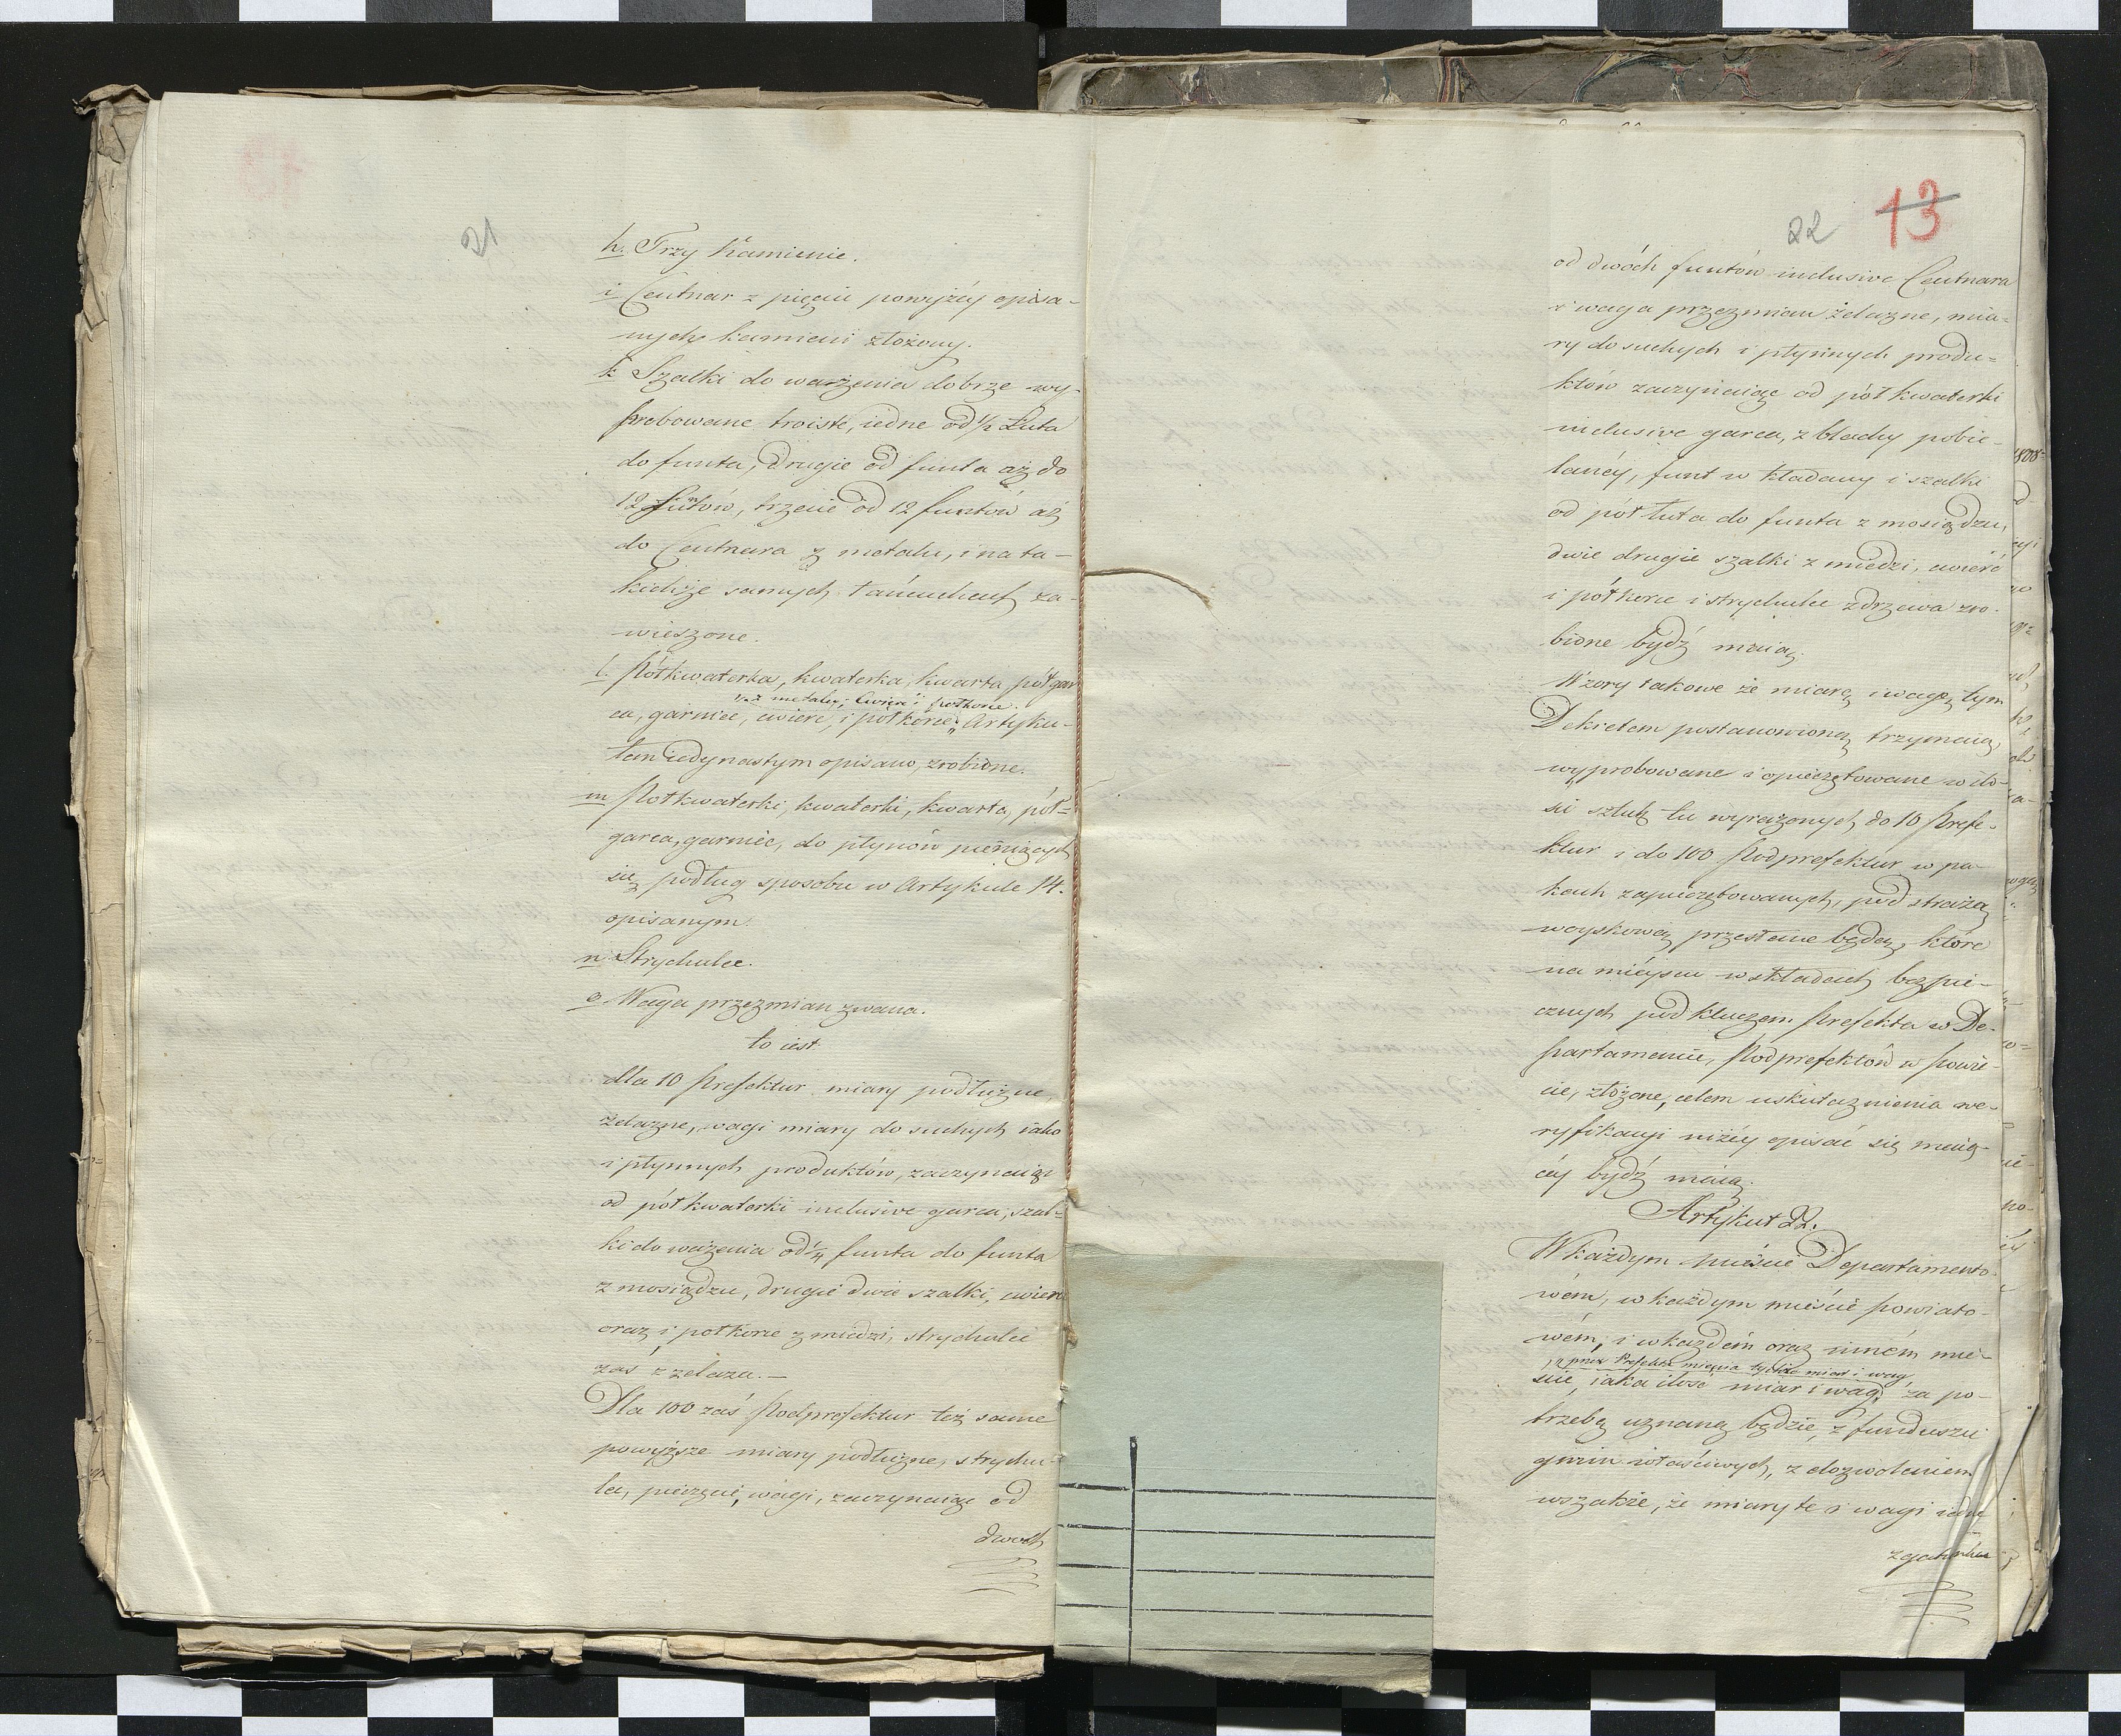 21
h. Trzy Kamienie.
i Centnar z pięciu powyżéy opisa-
nych kamieni złożony.
k Szalki do ważenia dobrze wy-
probowane troiste, iedne od ½ Łuta
do funta, drugie od funta aż do
12 funtów, trzecie od 12 funtów aż
do Centnara z metalu, i na ta-
kichże samych łańcuchach za-
wieszone.
l. Półkwaterka, kwaterka, kwarta, pół gar
z metalu; ćwierć i półkorce.
ca, garniec, ćwierć, i półkorce, Artyku-
łem iedynastym opisano, zrobione.
m Półkwaterki, kwaterki, kwarta, pół-
garca, garniec, do płynów pieniących
się, podług sposobu w Artykule 14.
opisanym.
n Strychulce.
o. Waga przezmian zwana.
to iest
dla 10 Prefektur miary podłużne,
żelazne, wagi miary do suchych iako
i płynnych produktów, zaczynaiąc
od pół kwaterki inclusive garca, szal-
ki do ważenia od ¼ funta do funta
z mosiądzu, drugie dwie szalki, ćwierć
oraz i półkorce z miedzi, strychulce
zaś z żelaza.—
Dla 100 zaś Podprefektur też same
powyższe miary podłużne, strychu-
lce, pieczęcie, wagi, zaczynaiąc od
dwóch
22 13
od dwóch funtów inclusive Centnara
i waga przezmian żelazne, mia-
ry do suchych i płynnych produ-
któw zaczynaiąc od pół kwaterki
inclusive garca, z blachy pobie-
lanéy, funt wkładany i szalki
od pół łuta do funta z mosiądzu,
dwie drugie szalki z miedzi, ćwierć
i półkorce i strychulce z drzewa zro-
bione bydź maią.
Wzory takowe że miarę i wagę tym
Dekretem postanowioną trzymaią,
wyprobowane i opieczętowane w ilo-
ści sztuk tu wyrażonych do 10 Prefe-
ktur i do 100 Podprefektur w pa-
kach zapieczętowanych, pod strażą
woyskową przesłane będą, które
na mieyscu w składach bezpie-
cznych pod kluczem Prefekta w De-
partamencie, Podprefektów w Powie-
cie, złożone, celem uskutecznienia we-
ryfikacyi niżéy opisać się maią-
céy bydź maią.
Artykuł 22.
W każdym mieście Departamento-
wém, w każdym mieście powiato-
wém, i w każdém oraz inném mie-
przez Prefekta mieysca tychże miar i wag
ście, iaka ilość miar i wag, za po-
trzebą uznaną będzie, z funduszu
gmin właściwych, z dozwoleniem
wszakże, że miary te i wagi